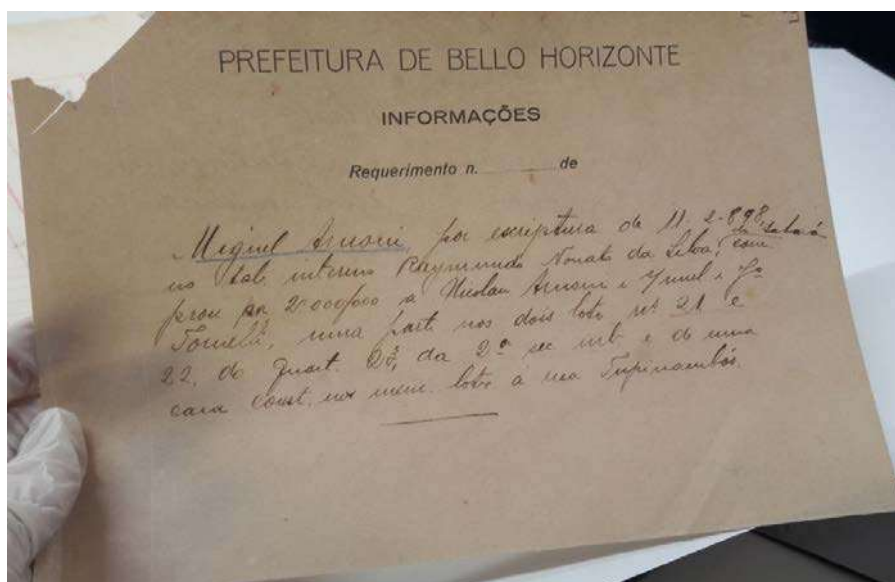 PREFEITURA DE BELLO HORIZONTE
INFORMAÇÕES
Requerimento n. de
Miguel Arnoni, por escriptura de 11-2-898,
de Sabará
no tab. interino Raymundo Nonato da Silva, com
prou por 2000$000 a Nicolau Arnoni e
uma parte nos dois lote nº 21 e
22, do Quart. 23, da 2ª sec urb e de uma
casa const. nos mem. lote á rua Tupinambás.